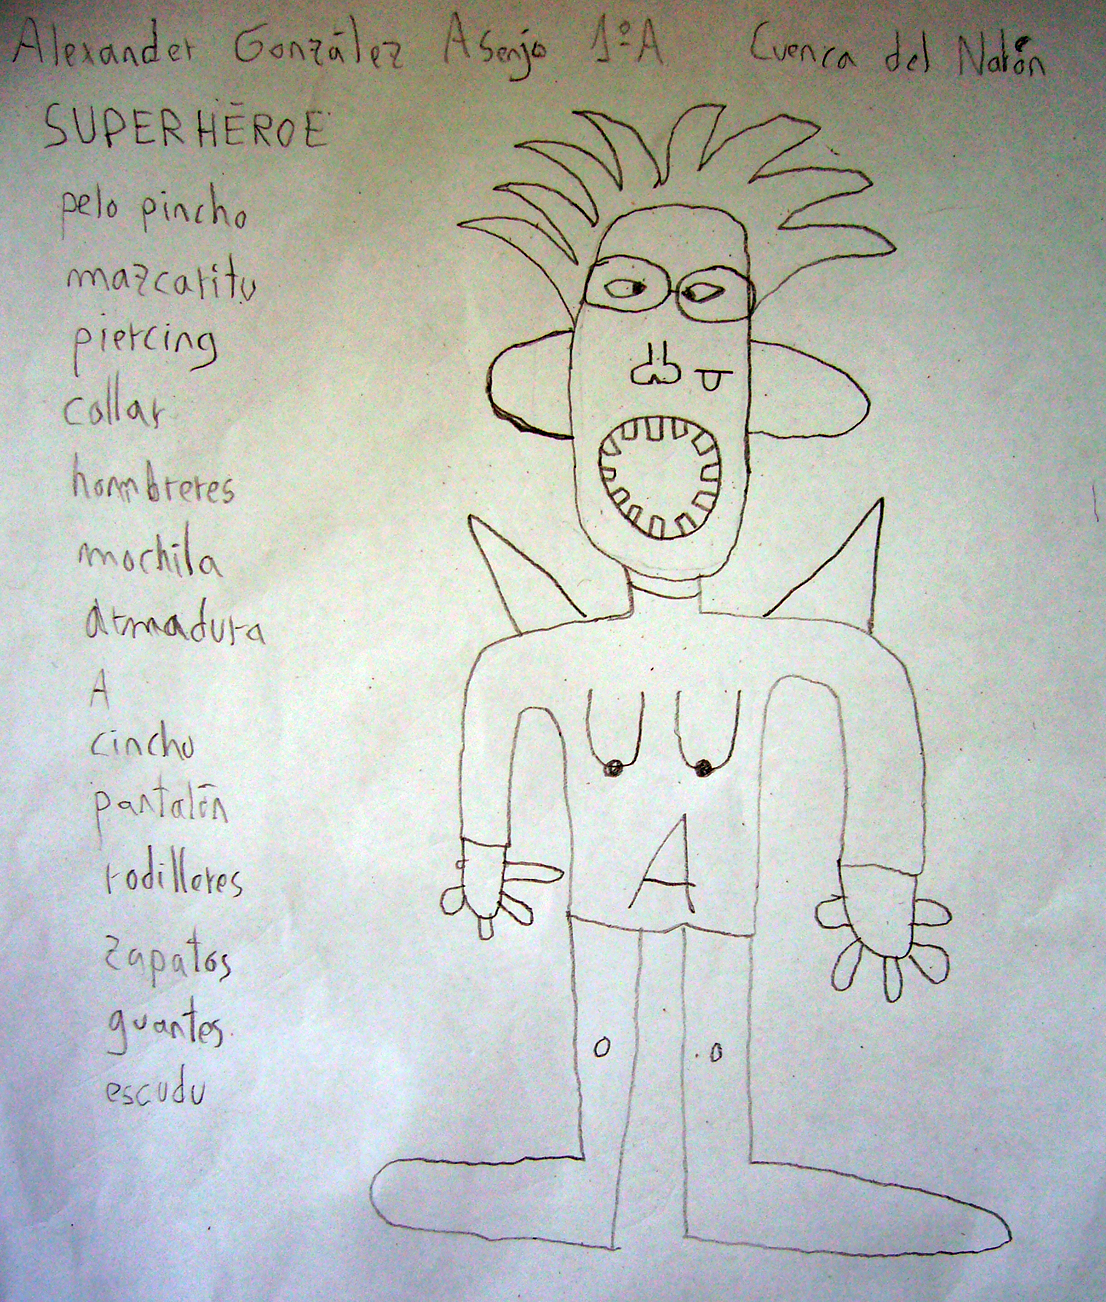 Alexander González Asenjo 1ºA Cuenca del Nalón
SUPERHÉROE
pelo pincho
mazcaritu
piercing
collar
hombreres
mochila
armadura
A
cinchu
pantalón
rodilleres
zapatos
guantes
escudu
A